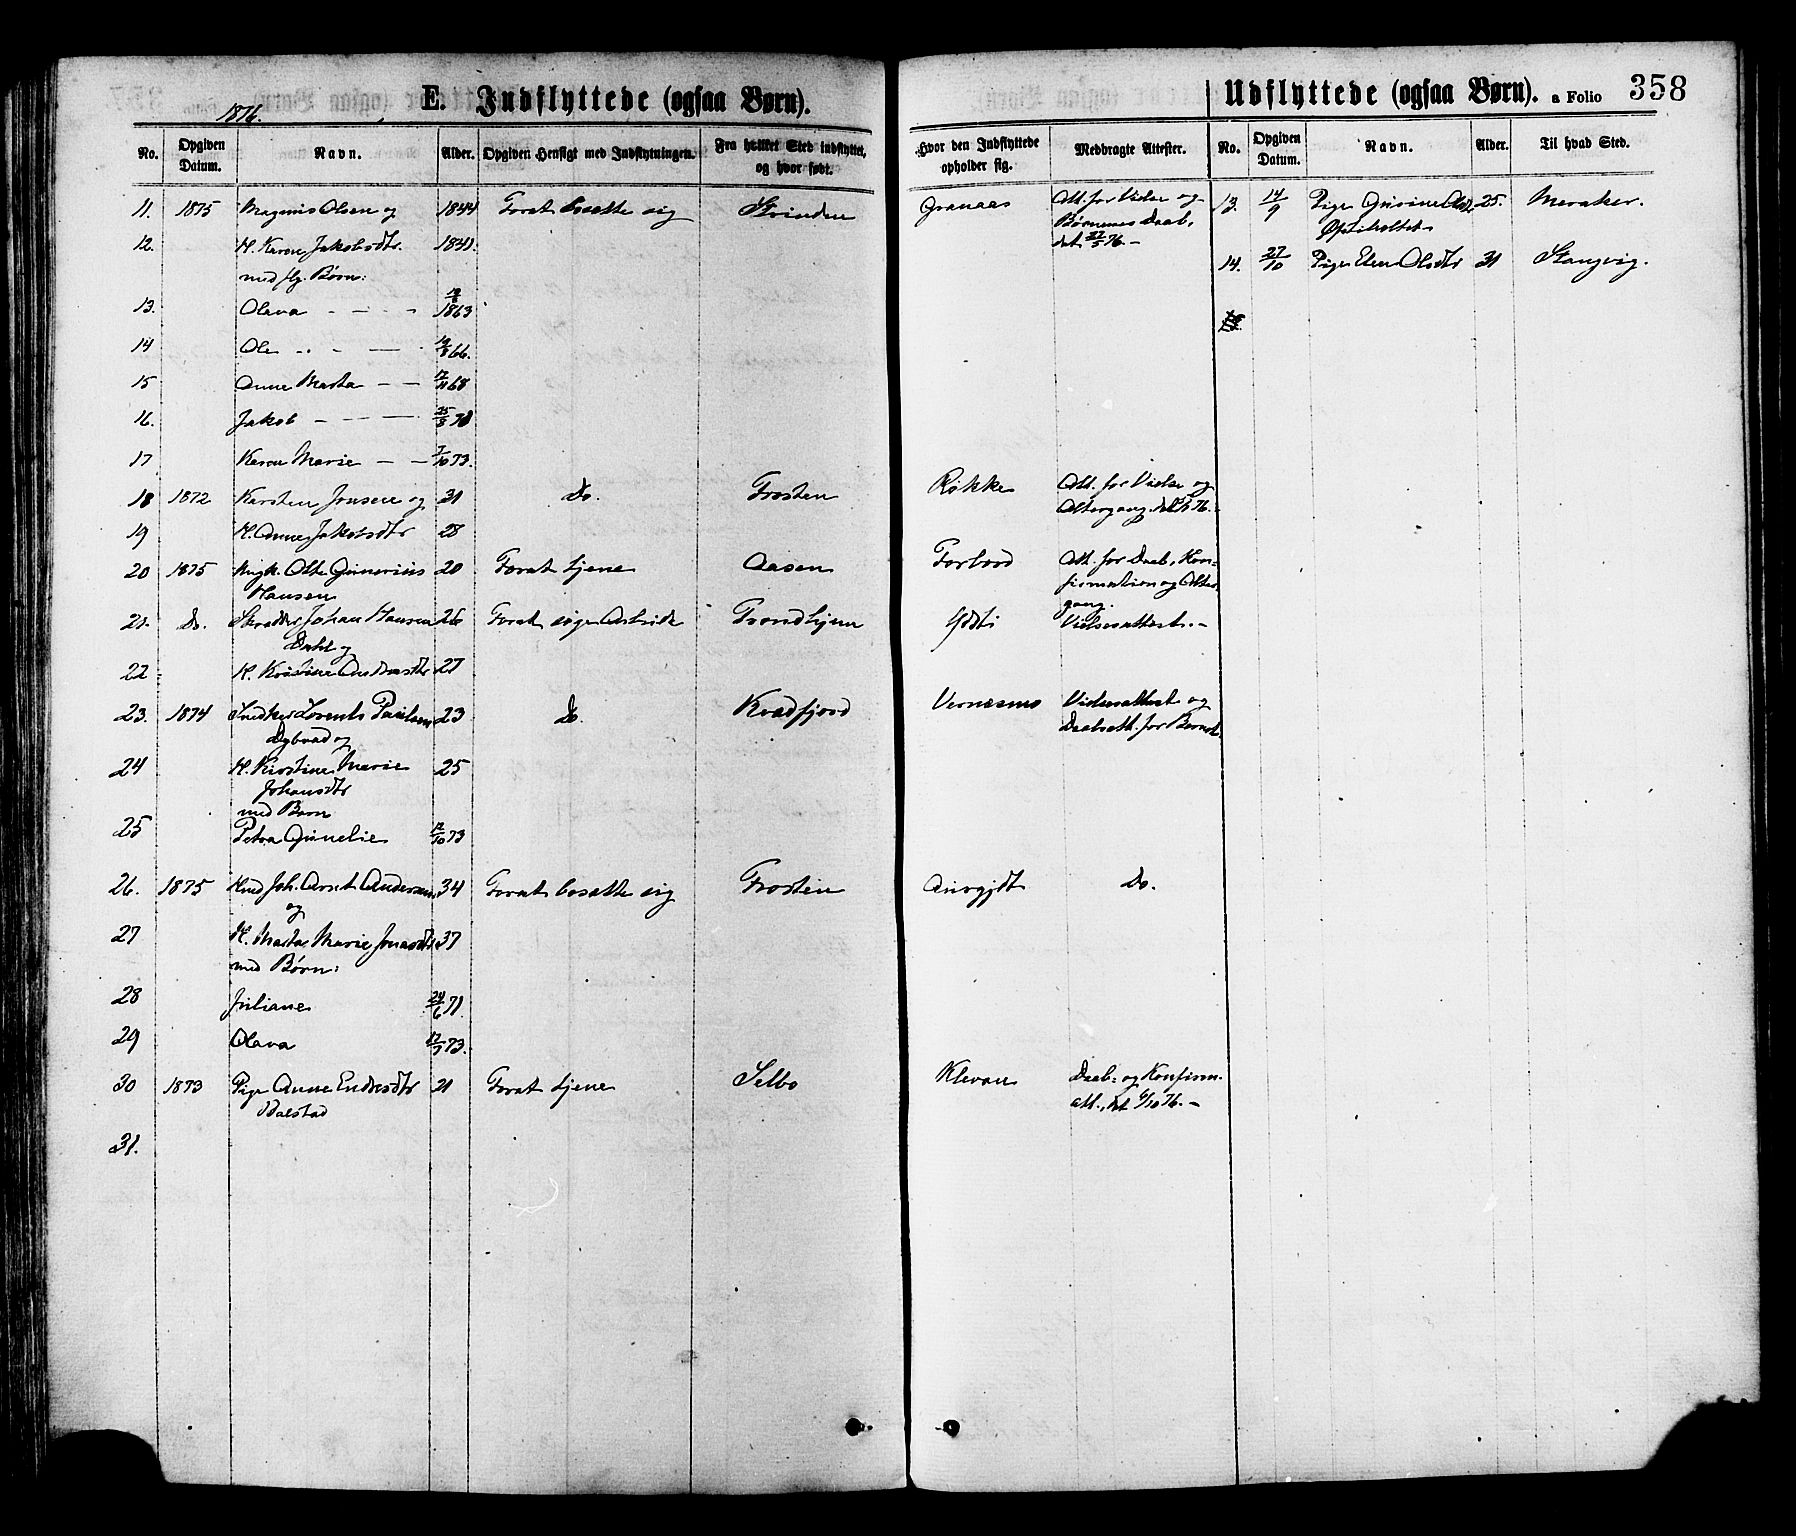 1876.
E. Indflyttede (ogsaa Børn).
No. Opgiven Datum. Navn. Alder. Opgiven Hensigt med Indflytningen. Fra hvilket Sted indflyttet, og hvor født.
Hvor den Indflyttede opholder sig. Medbragte Attester.
11. 1875 Magnus Olsen og 1844 For at bosætte sig Strinden Granaas Att. for Vielse og
Børnenes Daab,
dat 22/5 76.-
12. H. Karen Jakobsdtr. 1841.
med flg. Børn:
13. Olava - - - - 12/8 1863
14 Ole - - - - 19/8 66.
15 Anne Marta - - 17/11 68
16. Jakob - - - - 25/5 71
17 Karen Marie - - 7/10 73.
18 1872 Karsten Jonsen og 31 Do. Frosten Røkke Att. for Vielse og
Altergang, dat 76.-
19 H. Anne Jakobsdtr 28
20 1875 Ungk. Olte Gunerius 20 For at tjene Aasen Forbord Att. for Daab, Kon-
Hansen firmation og Alter-
gang.
21. Do. Skrædder Johan Hansen 26 For at søge Arbeide Trondhjem Ydsti Vielsesattest.-
Dahl og
22 H. Kristine Andreasdtr 27
23. 1874 Snedker Lorents Paulsen 23 Do. Kvædfjord Vernesmo Vielsesattest og
Dybvad og Daabsatt. for Barnet.
24 H. Kirstine Marie 25
Johansdtr
med Barn
25 Petra Gunelie 12/10 73
26. 1875 Hmd Joh. Arnt Andersen 34 For at bosætte sig Frosten Auvgjdt Do.
og
27 H. Marta Marie Jonasdtr 37
med Børn:
28 Juliane 24/6 71.
29 Olava 12/7 73.
30 1873 Pige Anne Endresdtr 21 For at tjene Selbo Klevan Daab- og Konfirm.
Balstad att., dat 6/10 76.-
31.
Udflyttede (ogsaa Børn). a Folio 358
No. Opgiven Datum. Navn. Alder. Til hvad Sted.
13. 14/9 Pige Gurine Olsd. 25. Meraker.
14. 27/10 Pige Elen Olsdtr 31 Stangvig.
15.